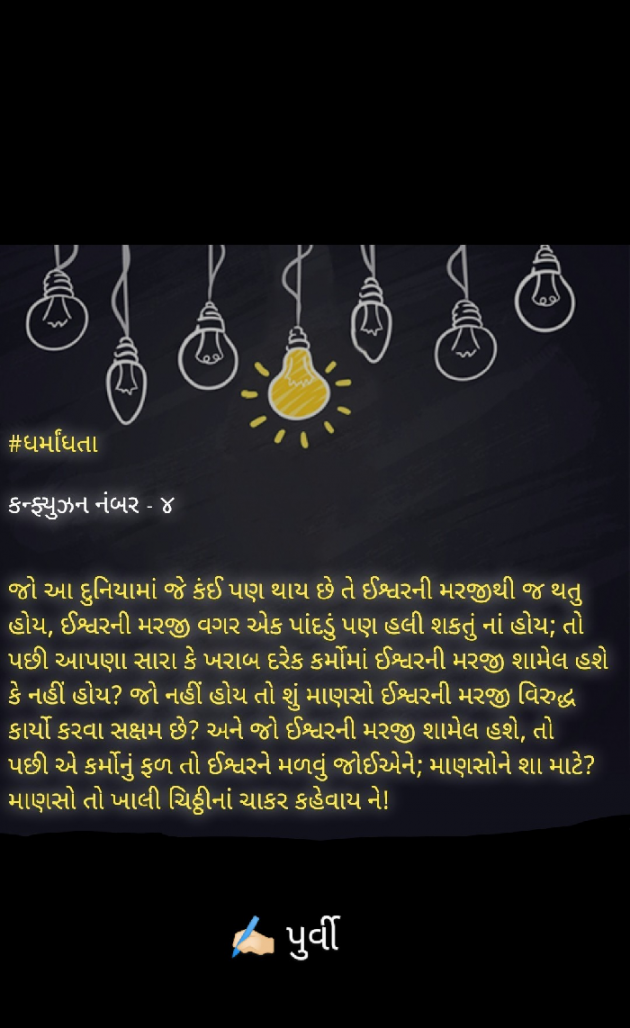 #ધર્માંધતા
કન્ફ્યુઝન નંબર - ૪
જો આ દુનિયામાં જે કંઈ પણ થાય છે તે ઈશ્વરની મરજીથી જ થતુ
હોય, ઈશ્વરની મરજી વગર એક પાંદડું પણ હલી શકતું નાં હોય; તો
પછી આપણા સારા કે ખરાબ દરેક કર્મોમાં ઈશ્વરની મરજી શામેલ હશે
કે નહીં હોય? જો નહીં હોય તો શું માણસો ઈશ્વરની મરજી વિરુદ્ધ
કાર્યો કરવા સક્ષમ છે? અને જો ઈશ્વરની મરજી શામેલ હશે, તો
પછી એ કર્મોનું ફળ તો ઈશ્વરને મળવું જોઈએને; માણસોને શા માટે?
માણસો તો ખાલી ચિઠ્ઠીનાં ચાકર કહેવાય ને!
✍🏻 પુર્વી